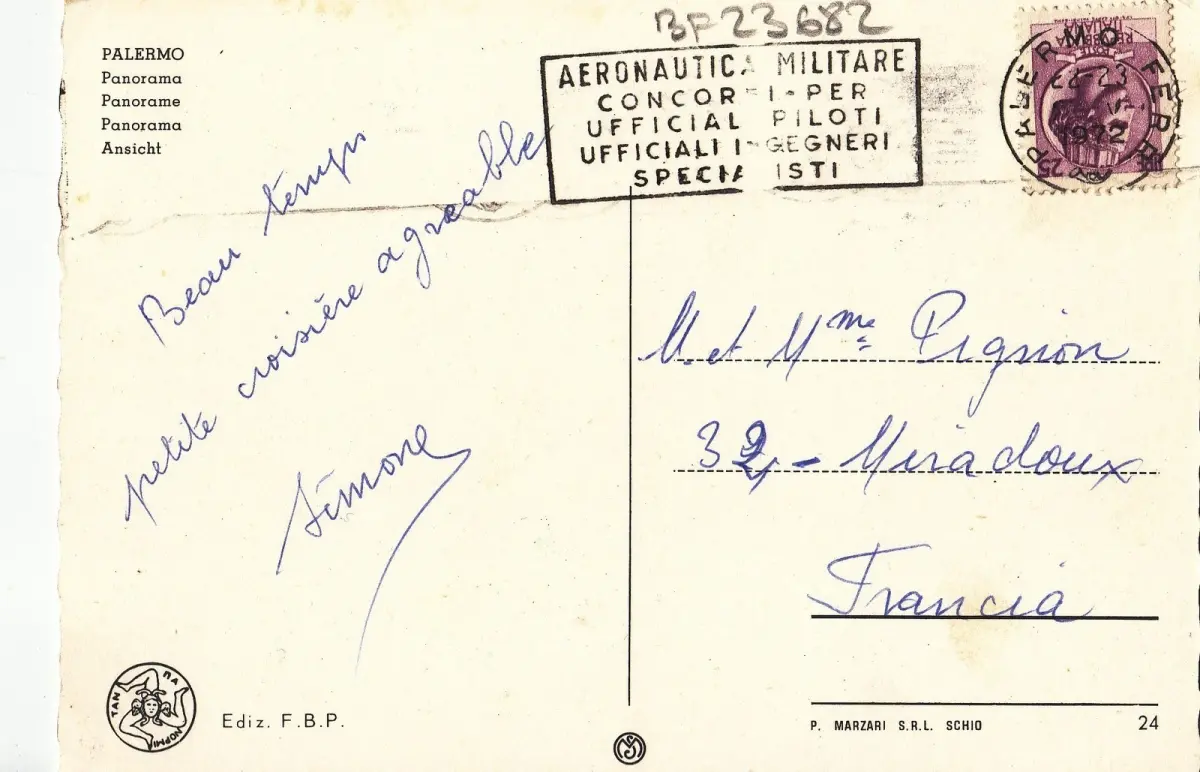 BF23682
PALERMO
Panorama
Panorame
Panorama
Ansicht
AERONAUTICA MILITARE
CONCORSI-PER
UFFICIALI PILOTI
UFFICIALI INGEGNERI
SPECIALISTI
PALERMO FERR
22-23
1972
25
Beau temps
petite croisière agréable
Simone
M. et Mme Pignon
32 - Miradoux
Francia
Ediz. F.B.P.
P. MARZARI S.R.L. SCHIO
24